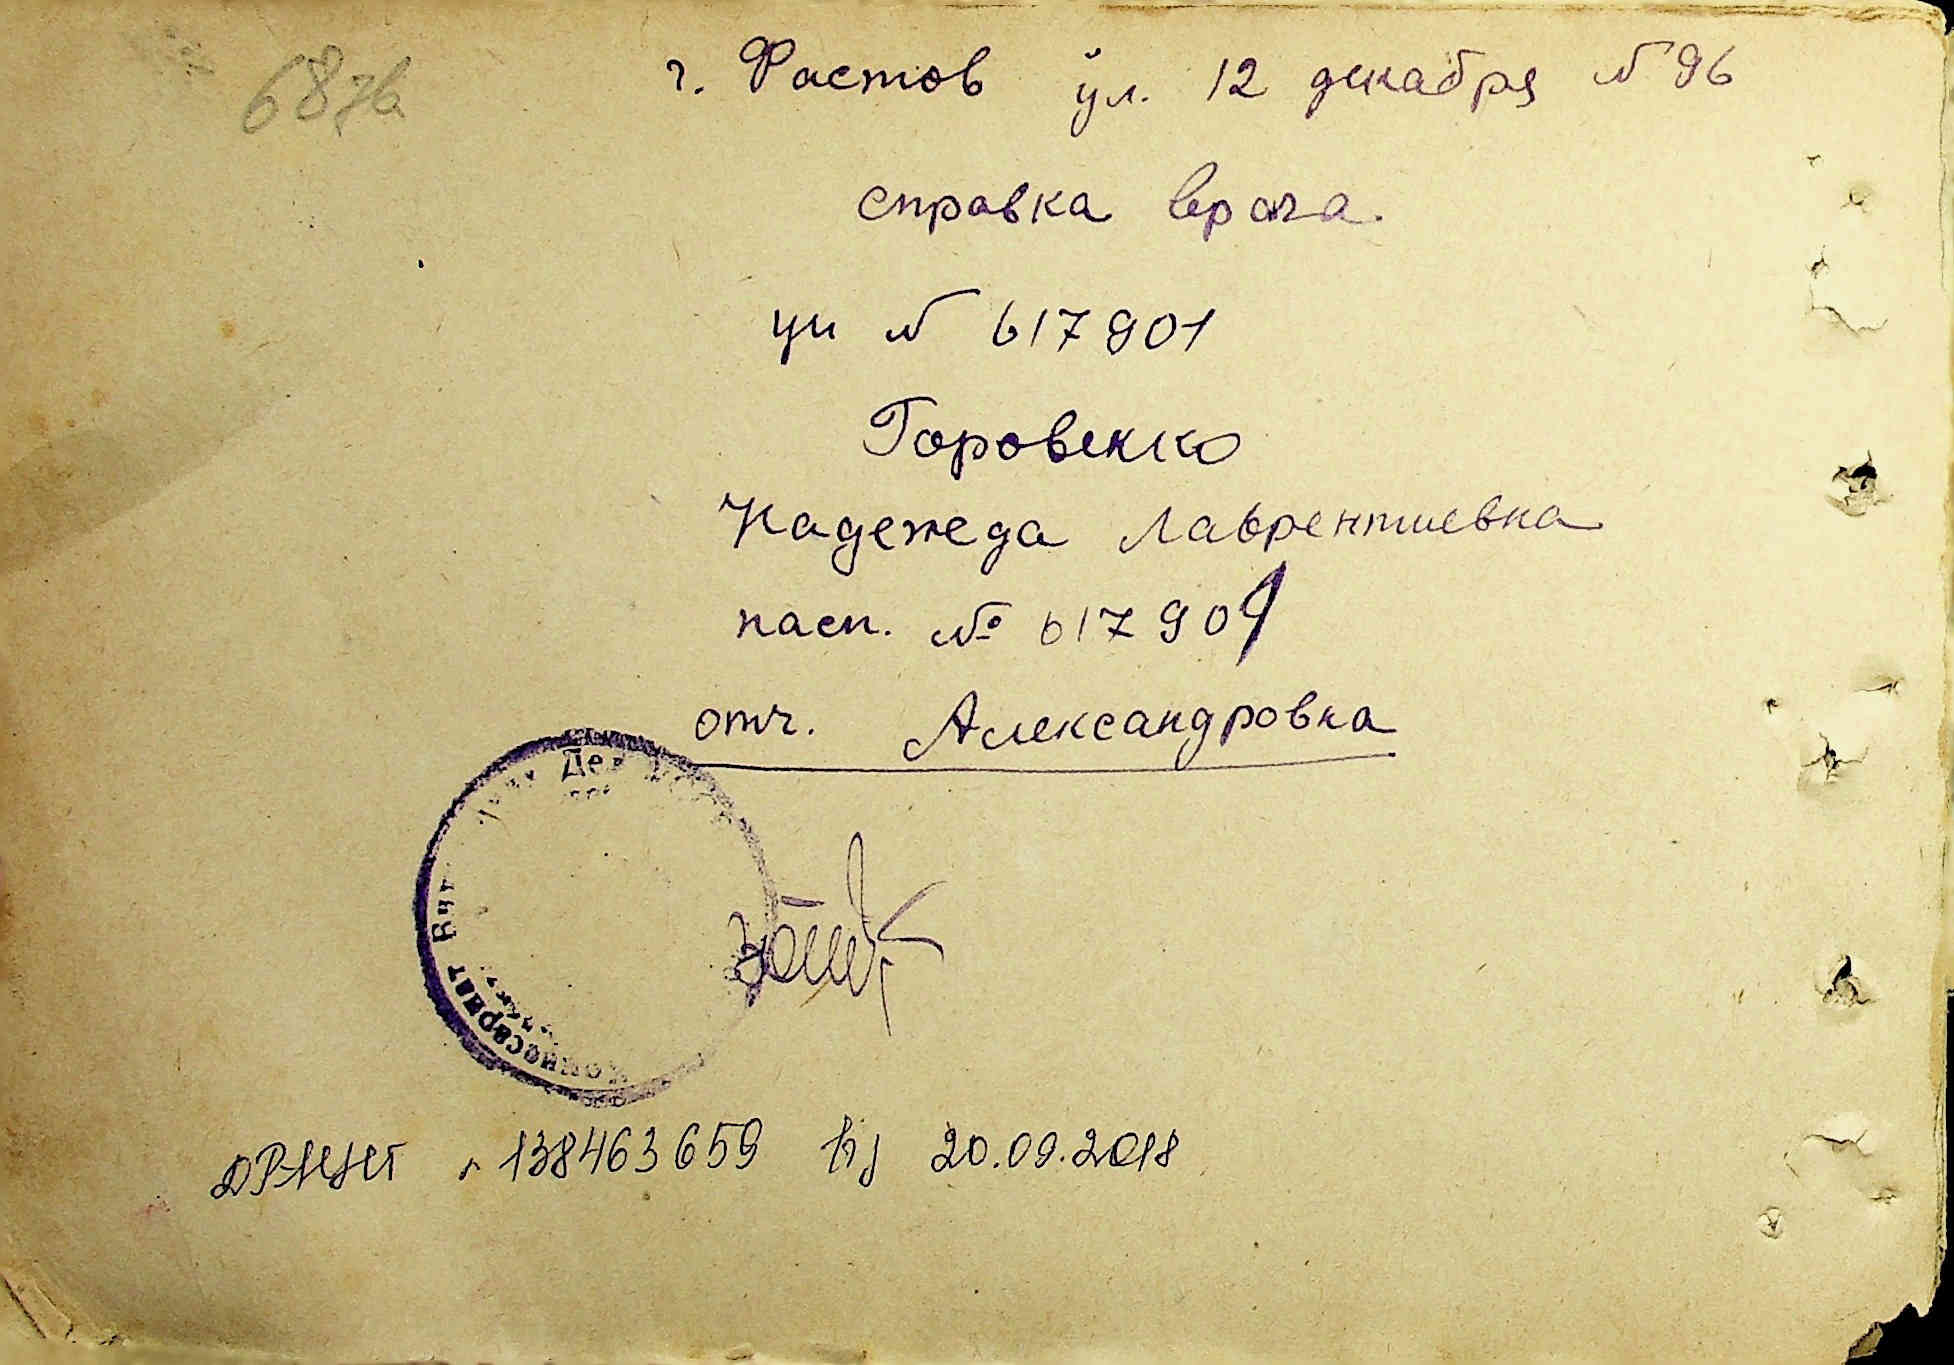 687в
г. Фастов ул. 12 декабря № 96
справка врача
ци № 617901
Горовенко
Надежда Лаврентиевна
пасп. № 617901
отч. Александровна
Комиссариат Вну Дел
ДРАЦСГ 138463659 від 20.09.2018